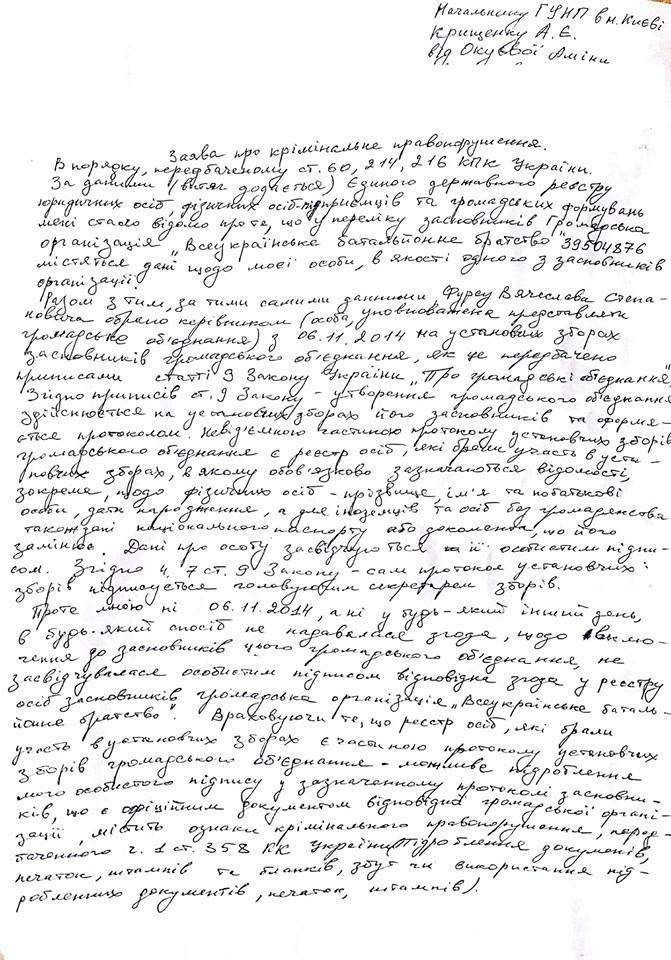 Начальнику ГУНП в м. Києві
Крищенку А. Є.
від Окуєвої Аміни
Заява про крімінальне правопорушення.
В порядку, передбаченому ст. 60, 214, 216 КПК України.
За даними (витяг додається) Єдиного державного реєстру
юридичних осіб, фізичних осіб-підприємців та громадських формувань
мені стало відомо про те, що у переліку засновників Громадська
організація „Всеукраїнське батальйонне братство" 39504876
містяться дані щодо моєї особи, в якості одного з засновників
організації.
Разом з тим, за тими самими данними Фурсу Вячеслава Степа-
новича обрано керівником (особа, уповноважена представляти
громадське об'єднання) з 06.11.2014 на установчих зборах
засновників громадського об'єднання, як це передбачено
приписами статті 9 Закону України „Про громадські об'єднання"
Згідно приписів ст. 9 Закону - утворення громадського об'єднання
здійснюється на установчих зборах його засновників та оформля-
ється протоколом. Невід'ємною частиною протоколу установчих зборів
громадського об'єднання є реєстр осіб, які брали участь в уста-
новчих зборах, в якому обов'язково зазначаються відомості,
зокрема, щодо фізичних осіб - прізвище, ім'я та по батькові
особи, дата народження, а для іноземців та осіб без громадянства
також дані національного паспорту або документа, що його
замінює. Дані про особу засвідчуються її особистим підпи-
сом. Згідно ч. 7 ст. 9 Закону - сам протокол установчих
зборів підписується головуючим секретарем зборів.
Проте мною ні 06.11.2014, а ні у будь-який інший день,
в будь-який спосіб не надавалася згода, щодо вклю-
чення до засновників цього громадського об'єднання, не
засвідчувалася особистим підписом відповідна згода у реєстру
осіб засновників громадська організація „Всеукраїнське баталь-
йонне братство". Враховуючи те, що реєстр осіб, які брали
участь в установчих зборах є частиною протоколу установчих
зборів громадського об'єднання - можливе підроблення
мого особистого підпису у зазначенному протоколі засновни-
ків, що є офіційним документом відповідної громадської органі-
зації, містить ознаки крімінального правопорушення, перед-
баченного ч. 1 ст. 358 КК України (Підроблення документів,
печаток, штампів та бланків, збут чи використання під-
роблених документів, печаток, штампів).